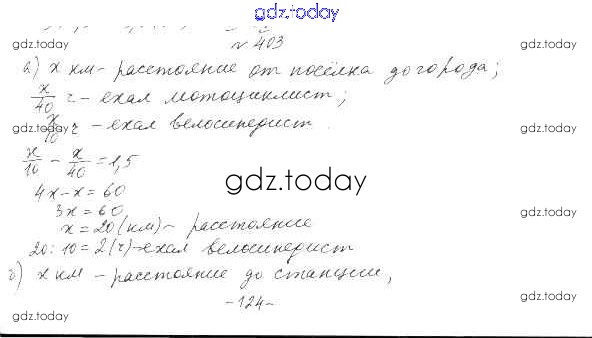 gdz.today
№ 403
gdz.today gdz.today
а) х км - расстояние от посёлка до города;
х/40 ч - ехал мотоциклист;
gdz.today gdz.today
х/10 ч - ехал велосипедист.
х/10 - х/40 = 1,5
gdz.today
4х - х = 60
3х = 60
gdz.today gdz.today
х = 20 (км) - расстояние
20 : 10 = 2 (ч) - ехал велосипедист
б) х км - расстояние до станции,
gdz.today gdz.today
- 124 -